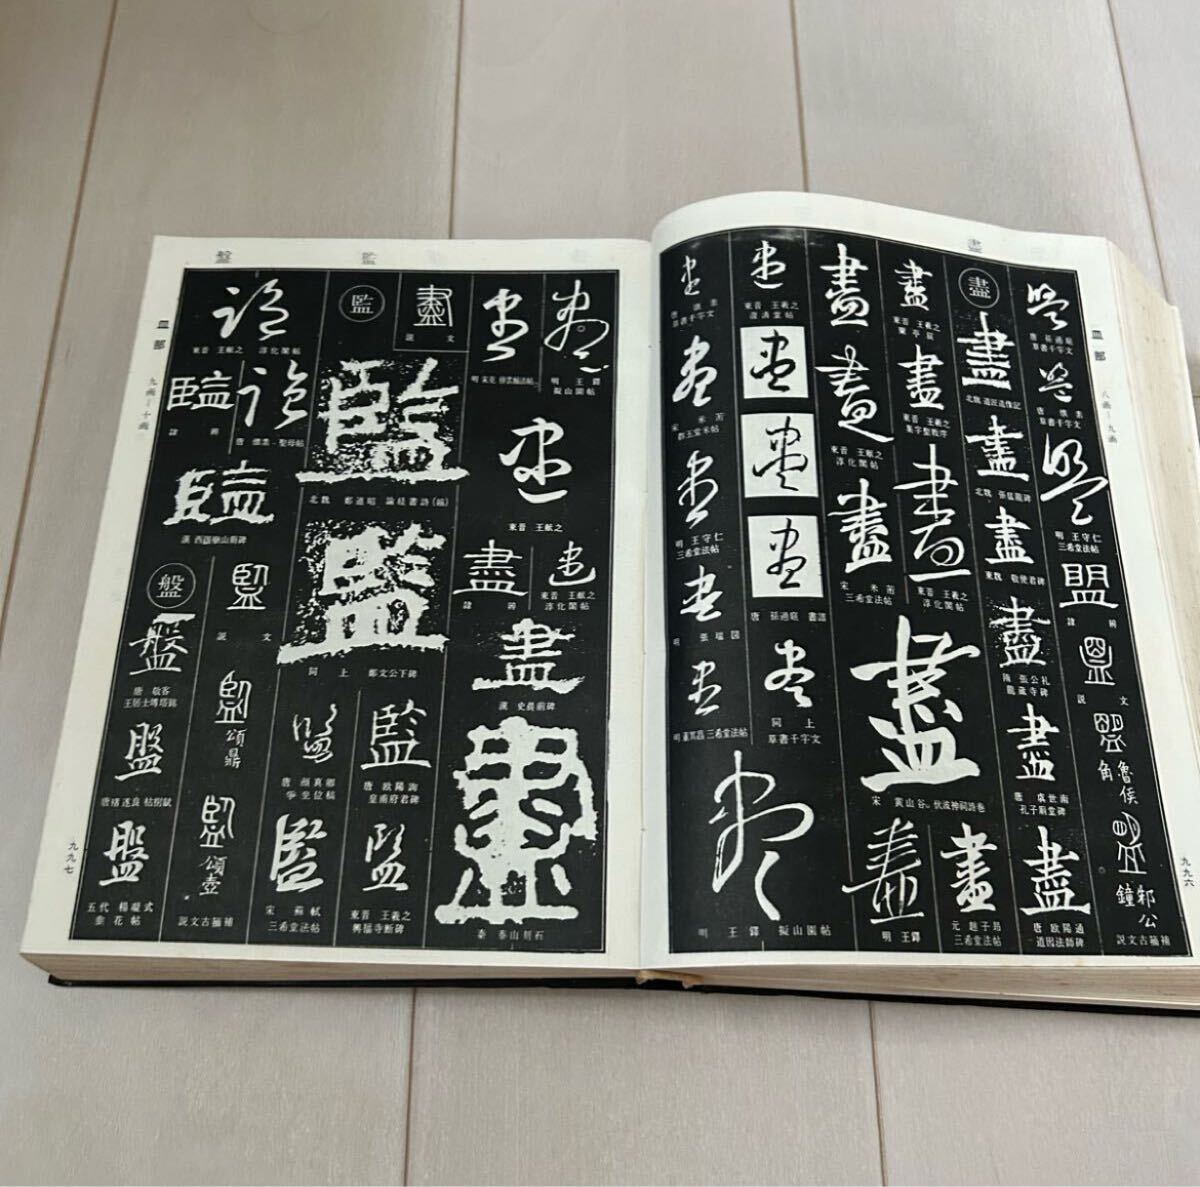 盡
皿部
八画—九画
九九六
唐 孫過庭
草書千字文
唐 懷素
草書千字文
明 王守仁
三希堂法帖
盟
隸辨
説文
魯侯角
邾公鐘
説文古籀補
盡
盡
北魏
盡
北魏 張猛龍碑
盡
東魏 敬使君碑
盡
盡
唐 虞世南
孔子廟堂碑
盡
唐 歐陽通
道因法師碑
盡
東晉 王羲之
盡
東晉 王羲之
集字聖教序
盡
東晉 王獻之
淳化閣帖
盡
宋 黃山谷 伏波神祠詩卷
盡
元 趙子昂
三希堂法帖
盡
盡
東晉 王獻之
淳化閣帖
盡
宋 米芾
三希堂法帖
明 王鐸
東晉 王羲之
澄清堂帖
唐 孫過庭 書譜
同上
草書千字文
唐 懷素
草書千字文
宋 米芾
明 王守仁
三希堂法帖
明 張瑞図
三希堂法帖
明 王鐸 擬山園帖
監
盤
皿部
九画—十画
九九七
明 王鐸
擬山園帖
明 宋克
東晉 王獻之
東晉 王獻之
淳化閣帖
盡
隸辨
盡
漢 史晨前碑
秦 泰山刻石
説文
監
監
北魏 鄭道昭 論経書詩
監
同上 鄭文公下碑
監
唐 歐陽詢
皇甫府君碑
唐 顔真卿
爭坐位稿
監
東晉 王羲之
興福寺断碑
監
宋 蘇軾
三希堂法帖
東晉 王獻之 淳化閣帖
唐 懷素 聖母帖
監
隸辨
監
説文
頌鼎
頌壺
説文古籀補
盤
盤
唐 敬客
王居士塼塔銘
盤
唐 褚遂良 枯樹賦
盤
五代 楊凝式
韭花帖